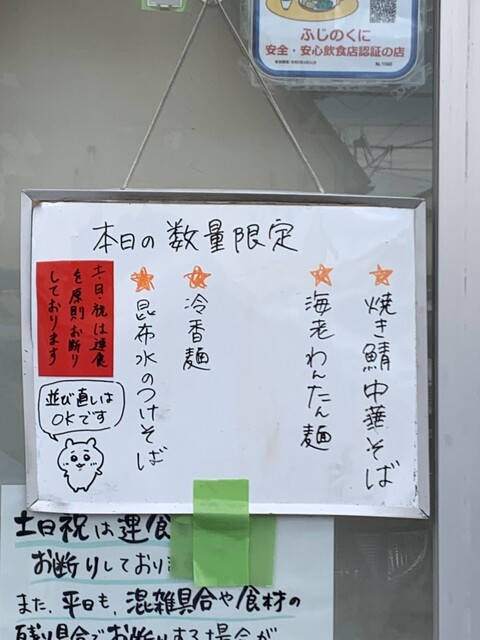 ふじのくに
安全・安心飲食店認証の店
本日の数量限定
焼き鯖中華そば
海老わんたん麺
冷香麺
昆布水のつけそば
土・日・祝は連食
を原則お断り
しております
並び直しは
OKです
土日祝は連食
お断りしており
また、平日も、混雑具合や食材の
残り具合でお断りする場合が